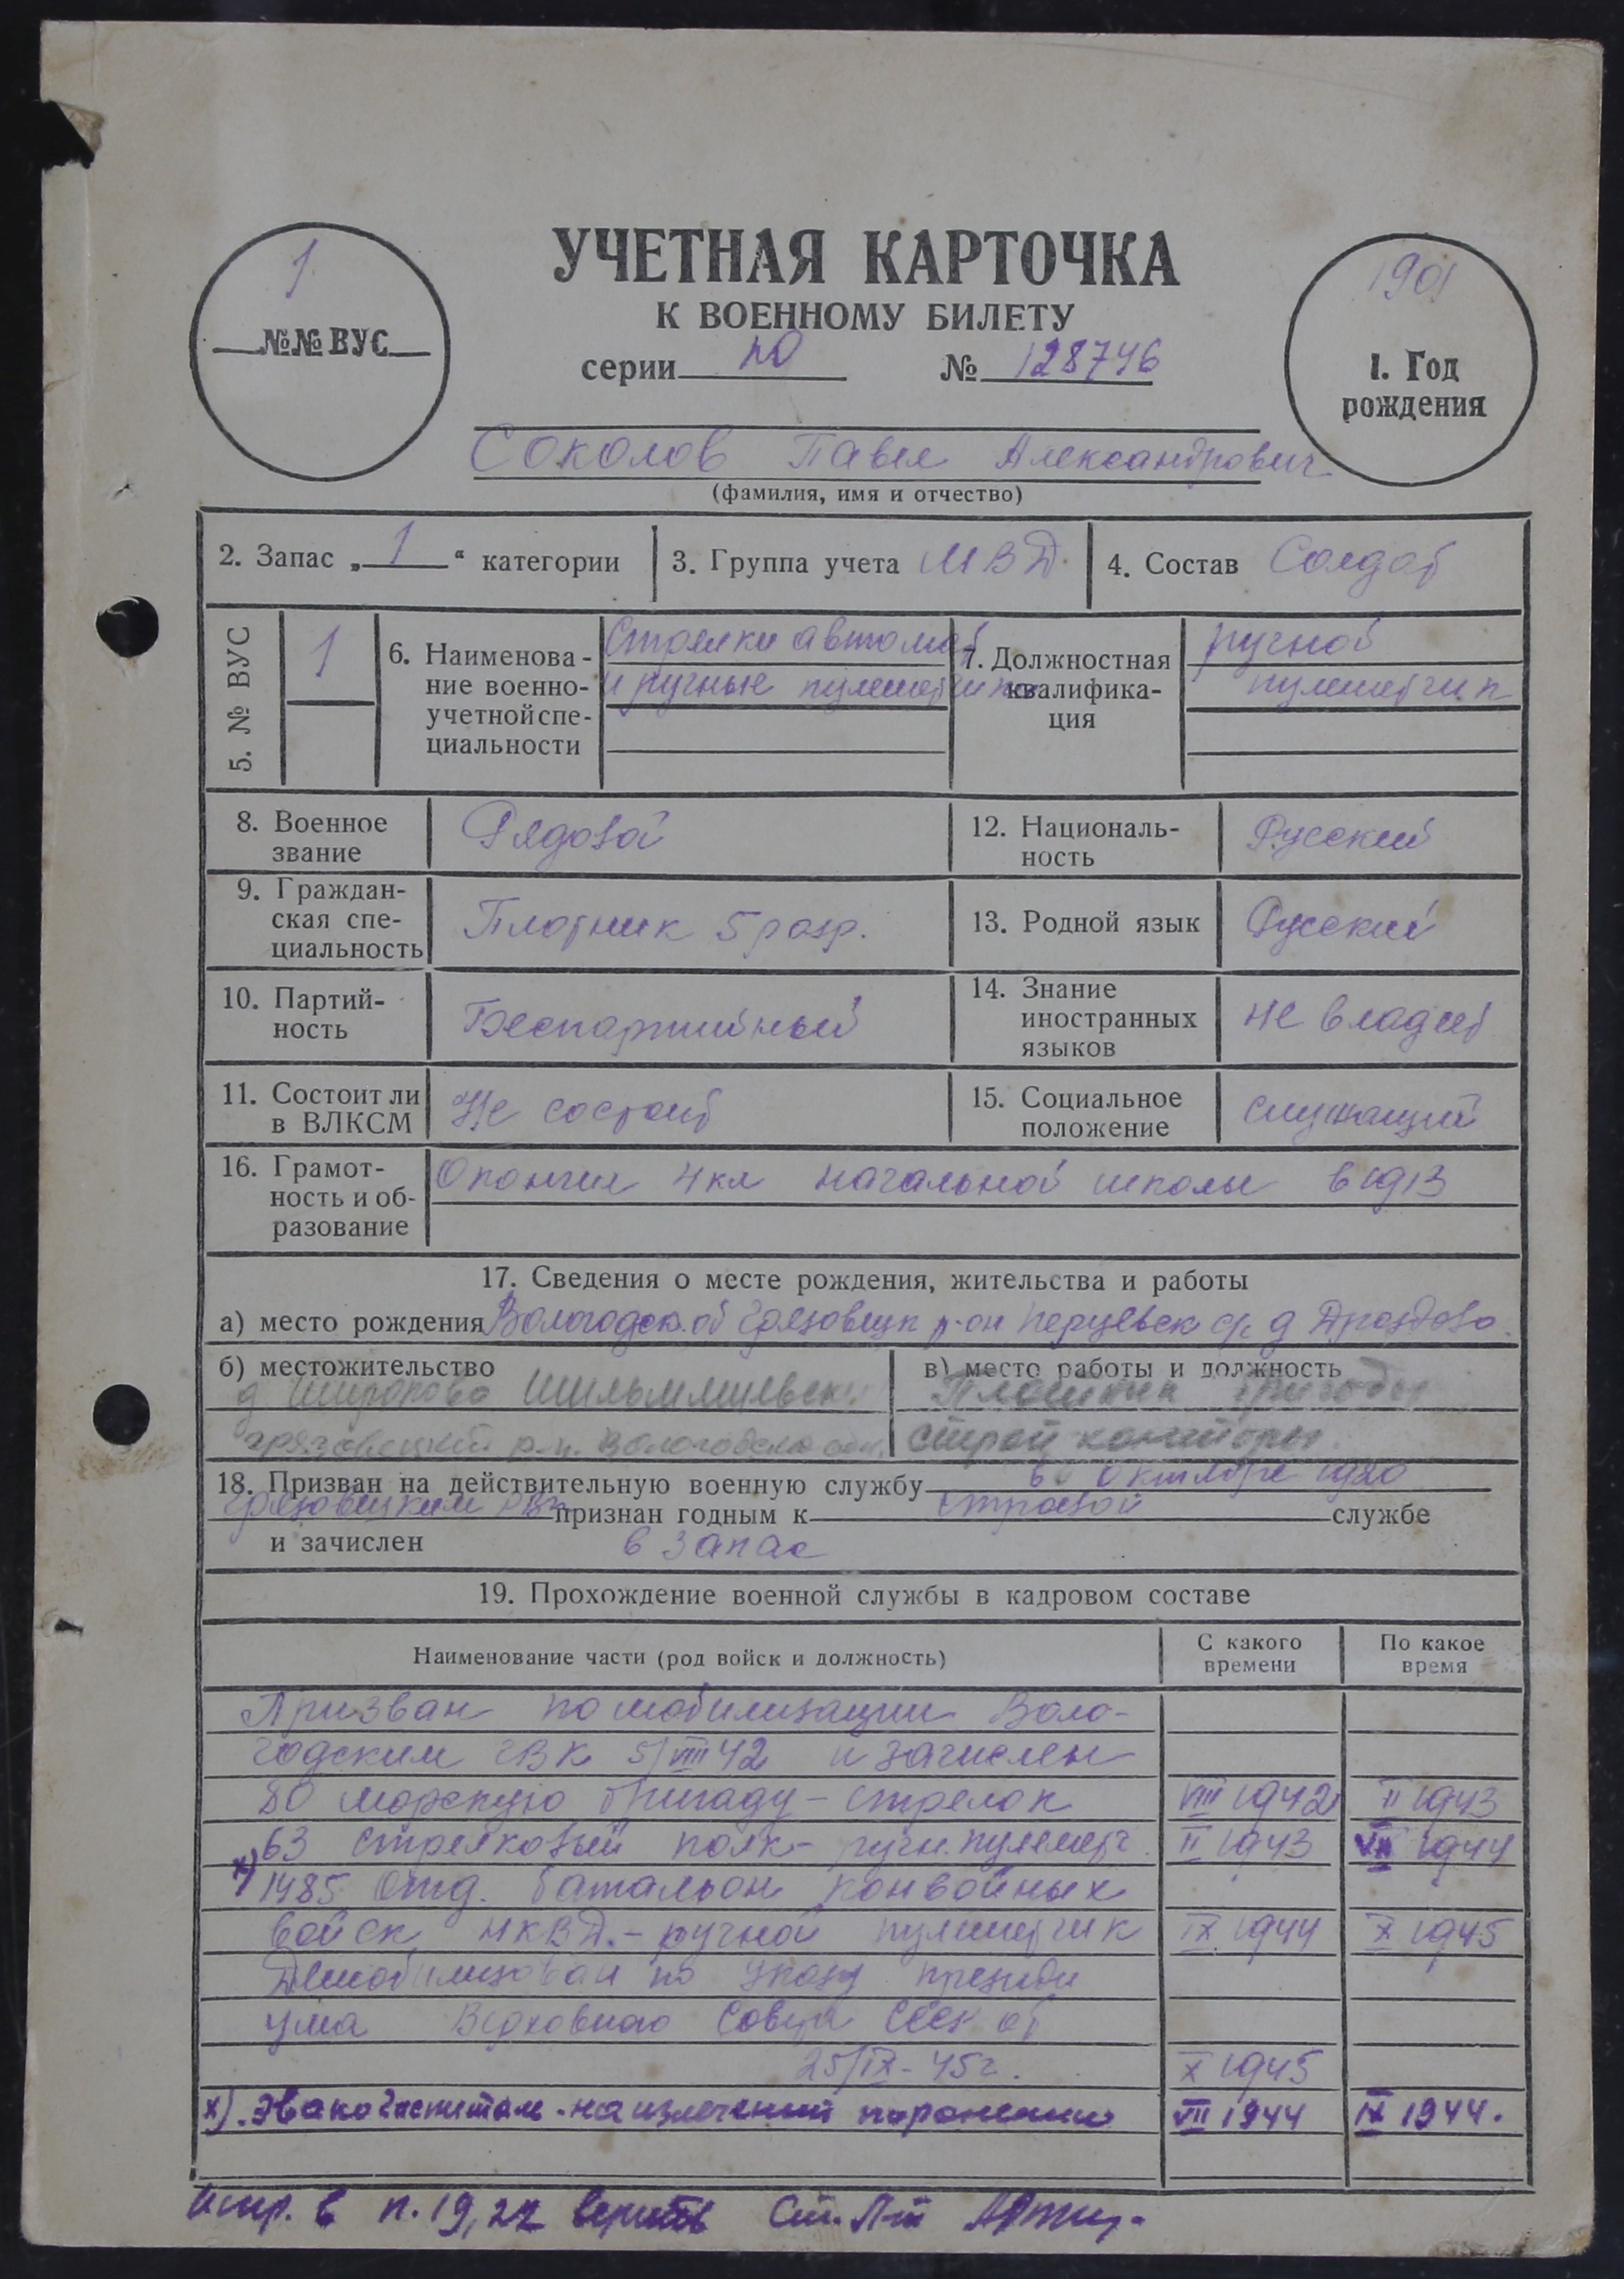 1
№№ ВУС
УЧЕТНАЯ КАРТОЧКА
К ВОЕННОМУ БИЛЕТУ
серии № 128746
1901
1. Год
рождения
Соколов Павел Александрович
(фамилия, имя и отчество)
2. Запас „ 1 “ категории
3. Группа учета МВД.
4. Состав Солдат
5. № ВУС
1
6. Наименова-
ние военно-
учетной спе-
циальности
Стрелки автомат
и ручные пулеметчики
7. Должностная
квалифика-
ция
ручной
пулеметчик
8. Военное
звание
Рядовой
12. Националь-
ность
Русский
9. Граждан-
ская спе-
циальность
Плотник 5 разр.
13. Родной язык
Русский
10. Партий-
ность
Беспартийный
14. Знание
иностранных
языков
не владеет
11. Состоит ли
в ВЛКСМ
Не состоит
15. Социальное
положение
служащий
16. Грамот-
ность и об-
разование
Окончил 4 кл начальной школы в 1913
17. Сведения о месте рождения, жительства и работы
а) место рождения Вологодск. об Грязовецк р-он с/с д Дроздово
б) местожительство
д
грязовецкий р-н. Вологодской обл.
в) место работы и должность
строй конторы.
18. Призван на действительную военную службу в октябре 1920
Грязовецким РВК признан годным к строевой службе
и зачислен в запас
19. Прохождение военной службы в кадровом составе
Наименование части (род войск и должность)
С какого
времени
По какое
время
Призван по мобилизации Воло-
годским ГВК 5/VIII 42 и зачислен
80 морскую бригаду – стрелок VIII 1942 II 1943
63 стрелковый полк – ручн. пулеметч. II 1943 VII 1944
х) 1485 отд. батальон конвойных
войск НКВД. – ручной пулеметчик IX 1944 X 1945
Демобилизован по указу президи
ума Верховного Совета СССР от
25/IX - 45 г. X 1945
х). Эвакогоспиталь - на излечении по ранению VII 1944 IX 1944.
Испр. в п. 19, 22 верить Ст. Л-т